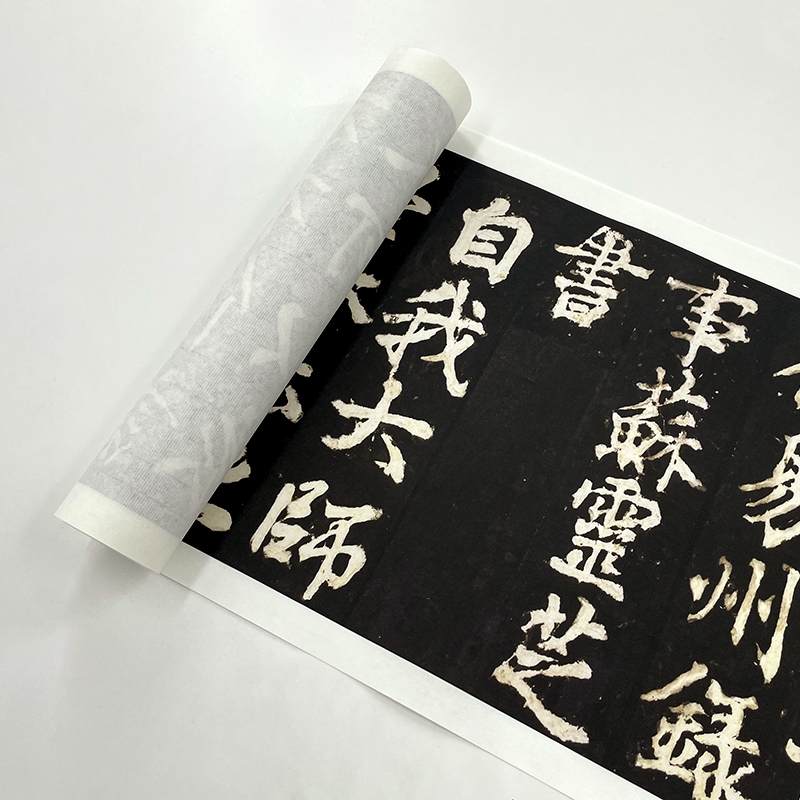 易州錄
事蘇靈芝
書
自我大師